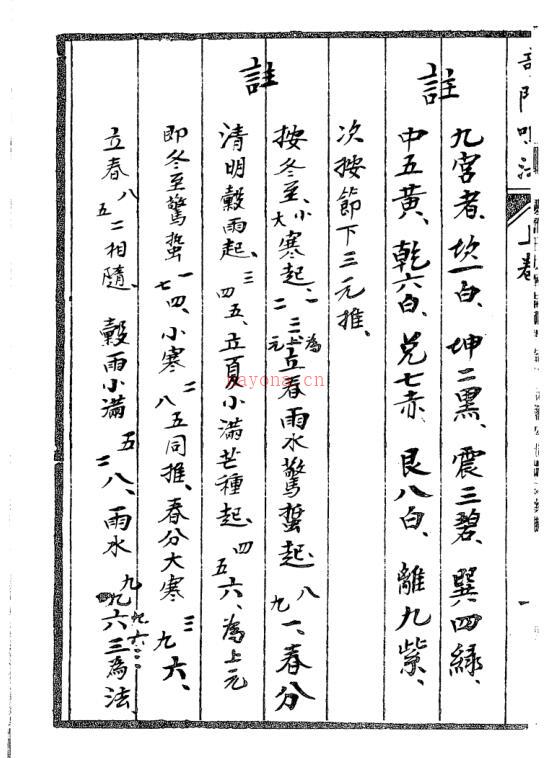 上卷
註
九宮者、坎一白、坤二黑、震三碧、巽四綠、
中五黃、乾六白、兌七赤、艮八白、離九紫、
次按節下三元推、
註
按冬至、小大寒起、一二三為上元立春雨水驚蟄起、八九一、春分
清明穀雨起、三四五、立夏小滿芒種起、四五六、為上元
即冬至驚蟄一七四、小寒二八五同推、春分大寒三九六、
立春八五二相隨、穀雨小滿五二八、雨水九六三為法、
nayona.cn